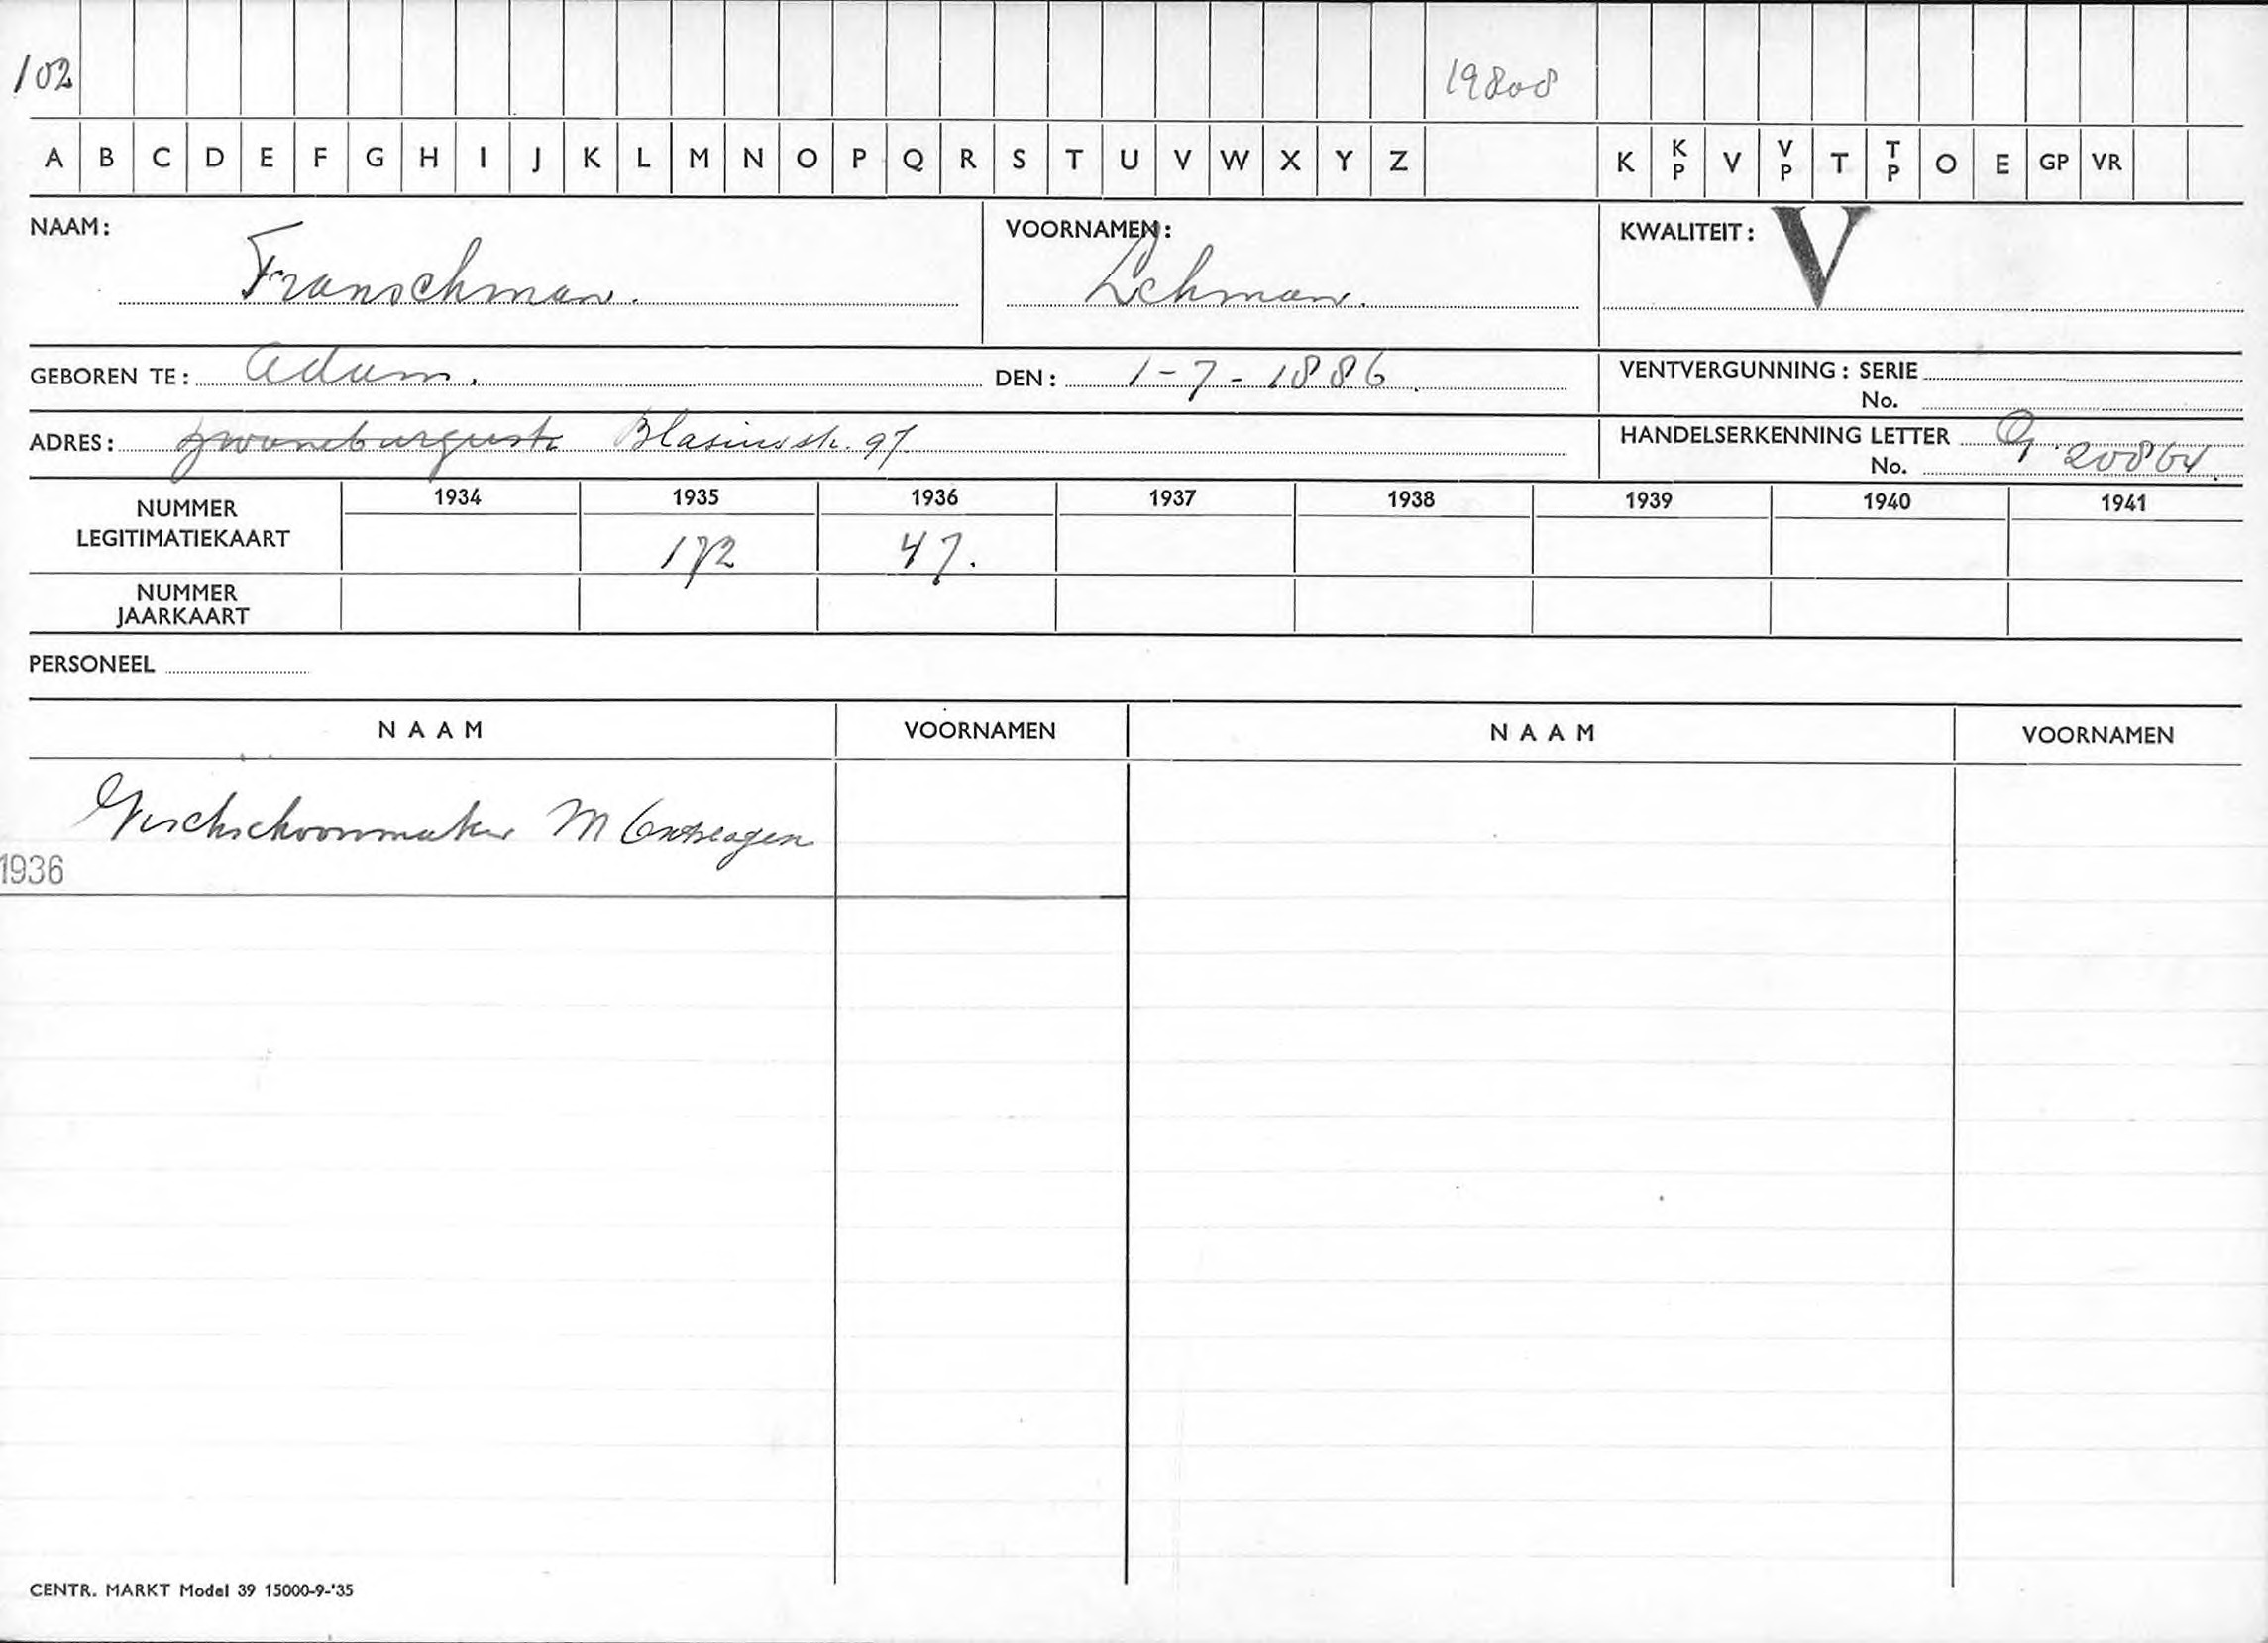 102 19808
A B C D E F G H I J K L M N O P Q R S T U V W X Y Z K KP V VP T TP O E GP VR
NAAM: Franschman. VOORNAMEN: Lehman. KWALITEIT: V
GEBOREN TE: Adam. DEN: 1-7-1886. VENTVERGUNNING: SERIE
No.
ADRES: Blasiusstr. 97 HANDELSERKENNING LETTER
No. 20864.
NUMMER LEGITIMATIEKAART 1934 1935 1936 1937 1938 1939 1940 1941
172 47.
NUMMER JAARKAART
PERSONEEL
NAAM VOORNAMEN NAAM VOORNAMEN
Vischschoonmaker M
1936
CENTR. MARKT Model 39 15000-9-'35